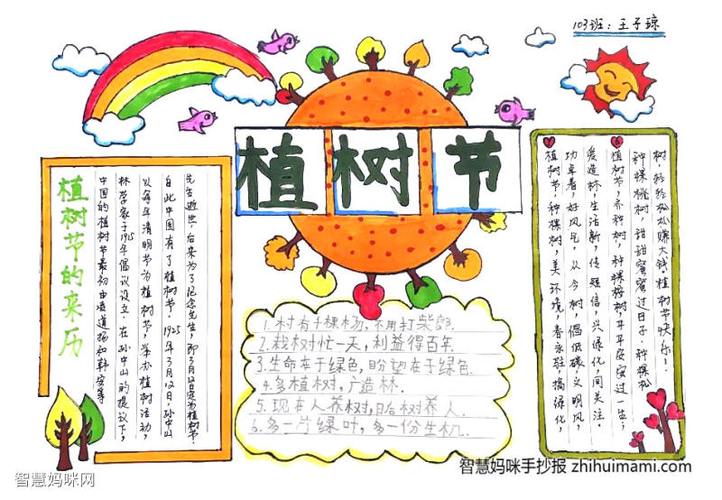 103班：王子琼
植树节
植树节的来历
中国的植树节最初由凌道扬和韩安等
林学家于1915年倡议设立，在孙中山的提议下，
以每年清明节为植树节，举办植树活动，
自此中国有了植树节．1925年3月12日，孙中山
先生逝世，后来为了纪念先生，即3月12日定为植树节
1.村有千棵杨，不用打柴
2.栽树忙一天，利益得百年．
3.生命在于绿色，盼望在于绿色．
4.多植树，广造林．
5.现在人养树，日后树养人．
6.多一片绿叶，多一份生机．
植树节，种棵树，美环境，春来驻，搞绿化，
功卓著，好风气，从今树，倡低碳，文明风，
爱造林，生活新，传短信，兴绿化，同关注．
植树节，齐种树，种棵榕树，平平安安过一生，
种棵桃树，甜甜蜜蜜过日子．种棵松
树，轻轻松松赚大钱，植树节快乐！
智慧妈咪网
智慧妈咪手抄报 zhihuimami.com